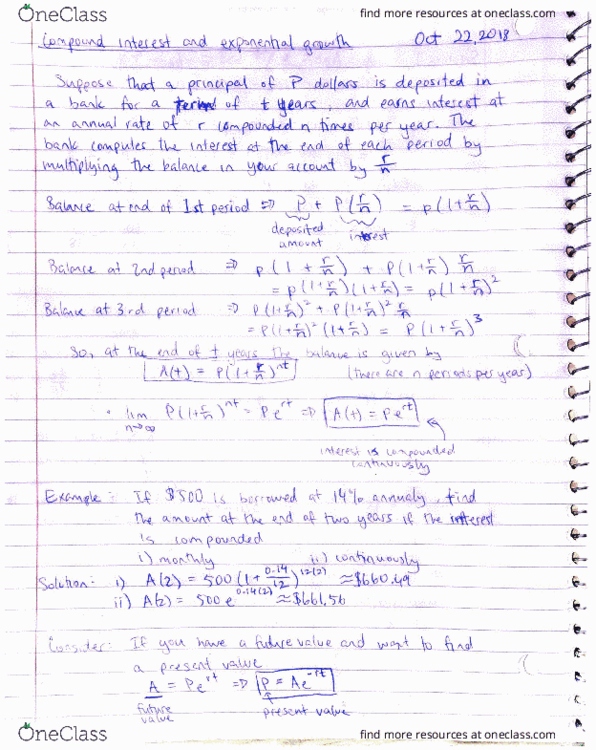 OneClass find more resources at oneclass.com
Compound interest and exponential growth Oct 22, 2018
Suppose that a principal of P dollars is deposited in
a bank for a term of t years, and earns interest at
an annual rate of r compounded n times per year. The
bank computes the interest at the end of each period by
multiplying the balance in your account by r/n
Balance at end of 1st period ⇒ P + P(r/n) = P(1+r/n)
deposited amount interest
Balance at 2nd period ⇒ P(1 + r/n) + P(1+r/n) r/n
= P(1+r/n)(1+r/n) = P(1+r/n)²
Balance at 3rd period ⇒ P(1+r/n)² + P(1+r/n)² r/n
= P(1+r/n)² (1+r/n) = P(1+r/n)³
So, at the end of t years the balance is given by
A(t) = P(1+r/n)^nt (there are n periods per year)
• lim n→∞ P(1+r/n)^nt = Pe^rt ⇒ A(t) = Pe^rt
interest is compounded
continuously
Example: If $500 is borrowed at 14% annualy, find
the amount at the end of two years if the interest
is compounded
i) monthly ii) continuously
Solution: i) A(2) = 500(1+0.14/12)^12(2) ≈ $660.49
ii) A(2) = 500e^0.14(2) ≈ $661.56
Consider: If you have a future value and want to find
a present value
A = Pe^rt ⇒ P = Ae^-rt
future value present value
OneClass find more resources at oneclass.com